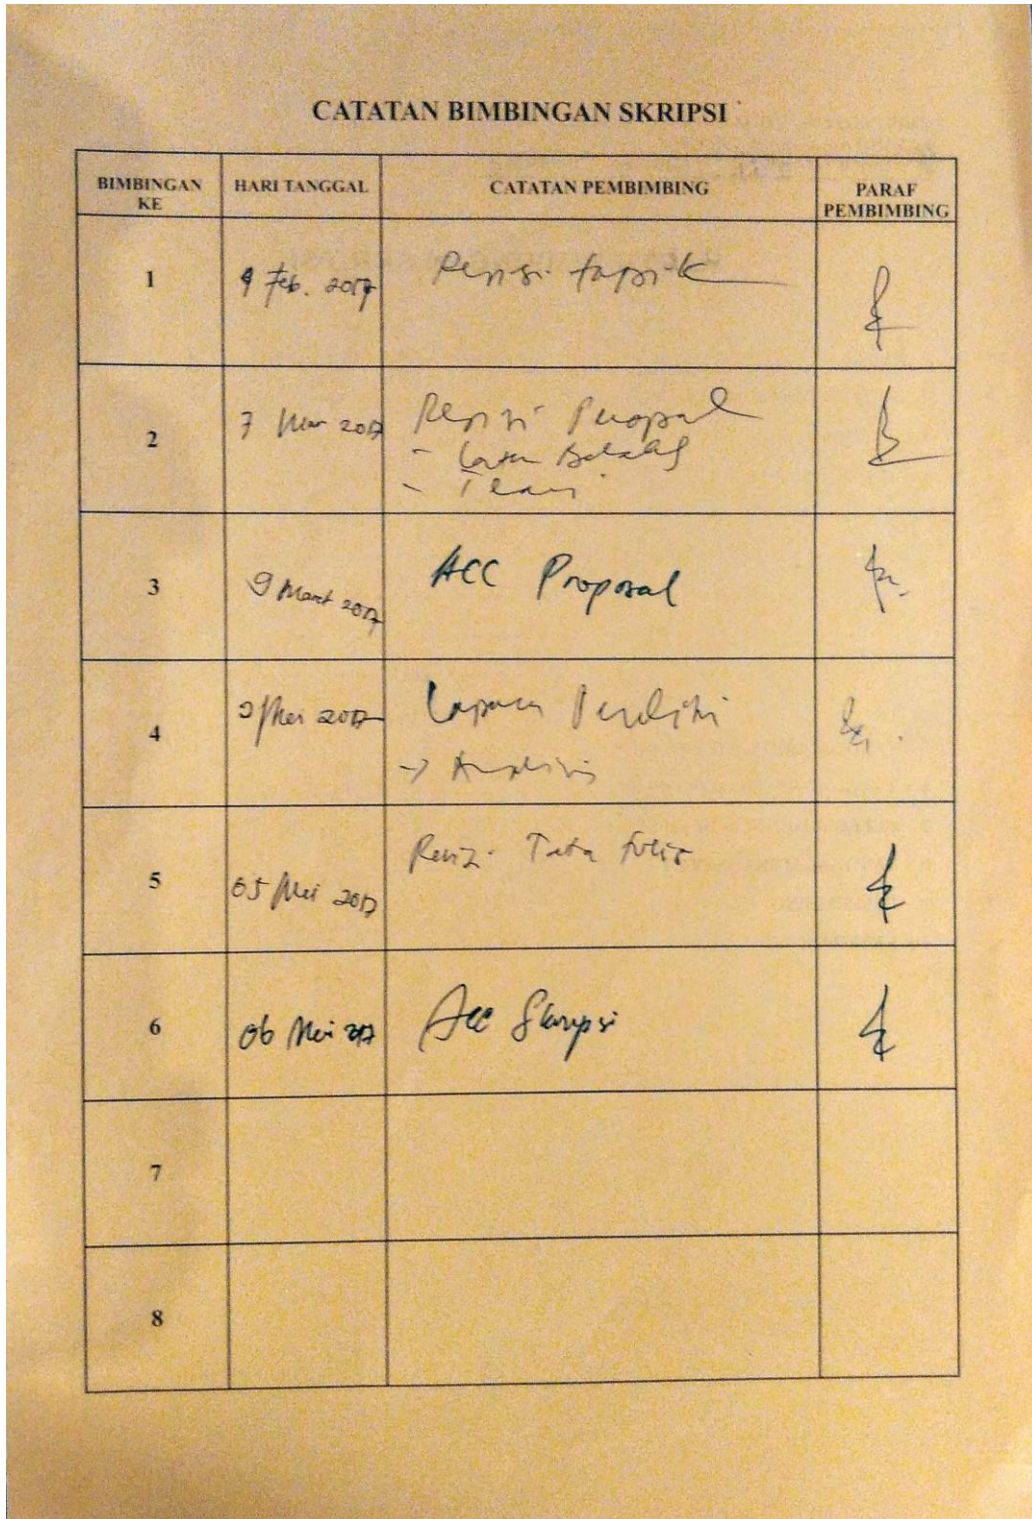 CATATAN BIMBINGAN SKRIPSI
BIMBINGAN KE HARI TANGGAL CATATAN PEMBIMBING PARAF PEMBIMBING
1 9 Feb. 2017 Revisi topik
2 7 Mar 2017 Revisi Proposal
- Latar Belakang
- Teori
3 9 Maret 2017 ACC Proposal
4 Mei 2017 Laporan Penelitian
-> Analisis
5 05 Mei 2017 Revisi Tata tulis
6 06 Mei 2017 Acc Skripsi
7
8